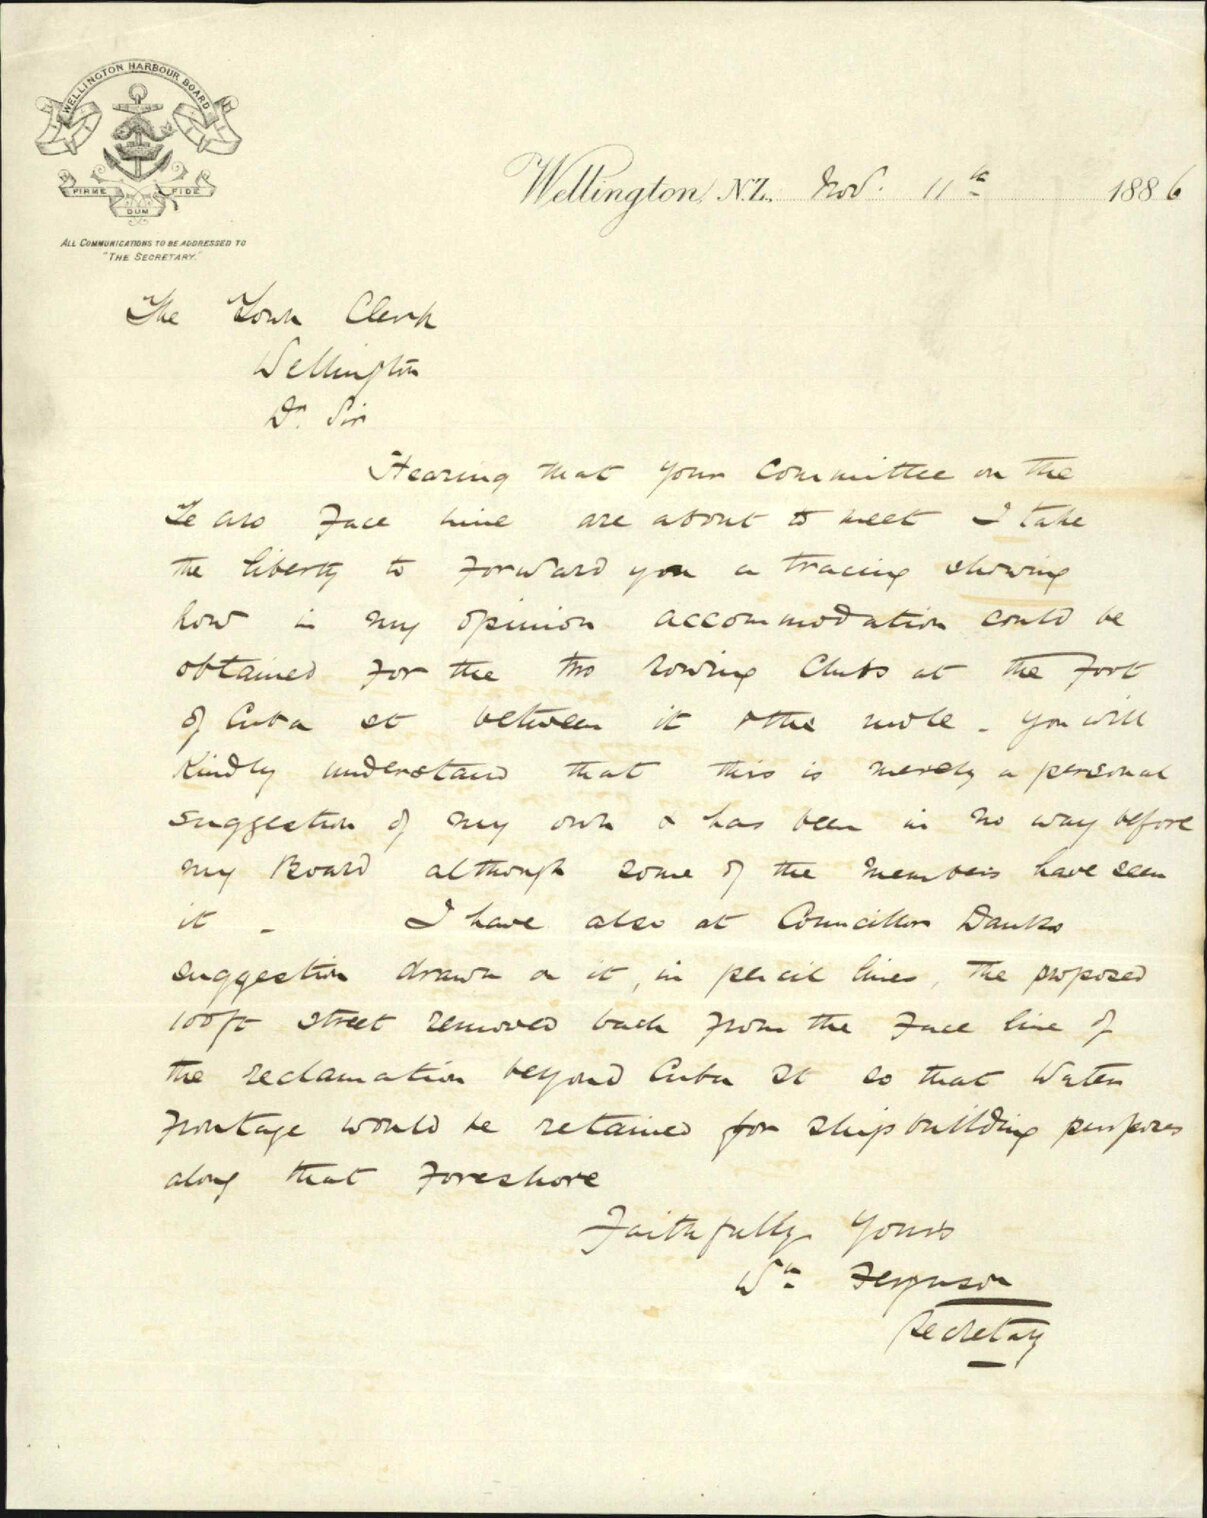 WELLINGTON HARBOUR BOARD
FIRME FIDE
DUM
ALL COMMUNICATIONS TO BE ADDRESSED TO
"THE SECRETARY."
Wellington, N.Z., Nov. 11th 1886
The Town Clerk
Wellington
Dr. Sir
Hearing that your Committee on the
Te Aro Face line are about to meet I take
the liberty to forward you a tracing showing
how in my opinion accommodation could be
obtained for the two rowing Clubs at the foot
of Cuba st between it & the mole - you will
Kindly understand that this is merely a personal
suggestion of my own & has been in no way before
my Board although some of the members have seen
it - I have also at Councillor Danks
suggestion drawn on it, in pencil lines, the proposed
100ft street removed back from the Face line of
the reclamation beyond Cuba St so that Water
frontage would be retained for shipbuilding purposes
along that Foreshore
Faithfully Yours
Wm Ferguson
Secretary